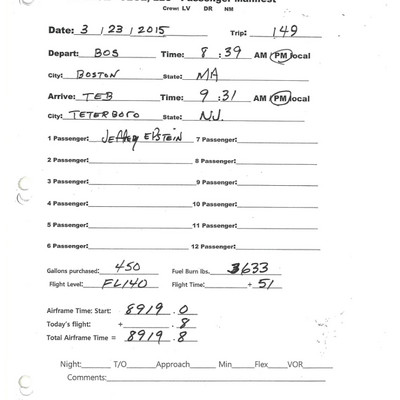 Passenger Manifest
Crew: LV DR NM
Date: 3 / 23 / 2015 Trip: 149
Depart: BOS Time: 8 : 39 AM / PM local
City: BOSTON State: MA
Arrive: TEB Time: 9 : 31 AM / PM local
City: TETERBORO State: NJ.
1 Passenger: JEFFREY EPSTEIN 7 Passenger:
2 Passenger: 8 Passenger:
3 Passenger: 9 Passenger:
4 Passenger: 10 Passenger:
5 Passenger: 11 Passenger:
6 Passenger: 12 Passenger:
Gallons purchased: 450 Fuel Burn lbs. 3633
Flight Level: FL140 Flight Time: + 51
Airframe Time: Start: 8919 . 0
Today's flight: + . 8
Total Airframe Time = 8919 . 8
Night: T/O Approach Min Flex VOR
Comments: